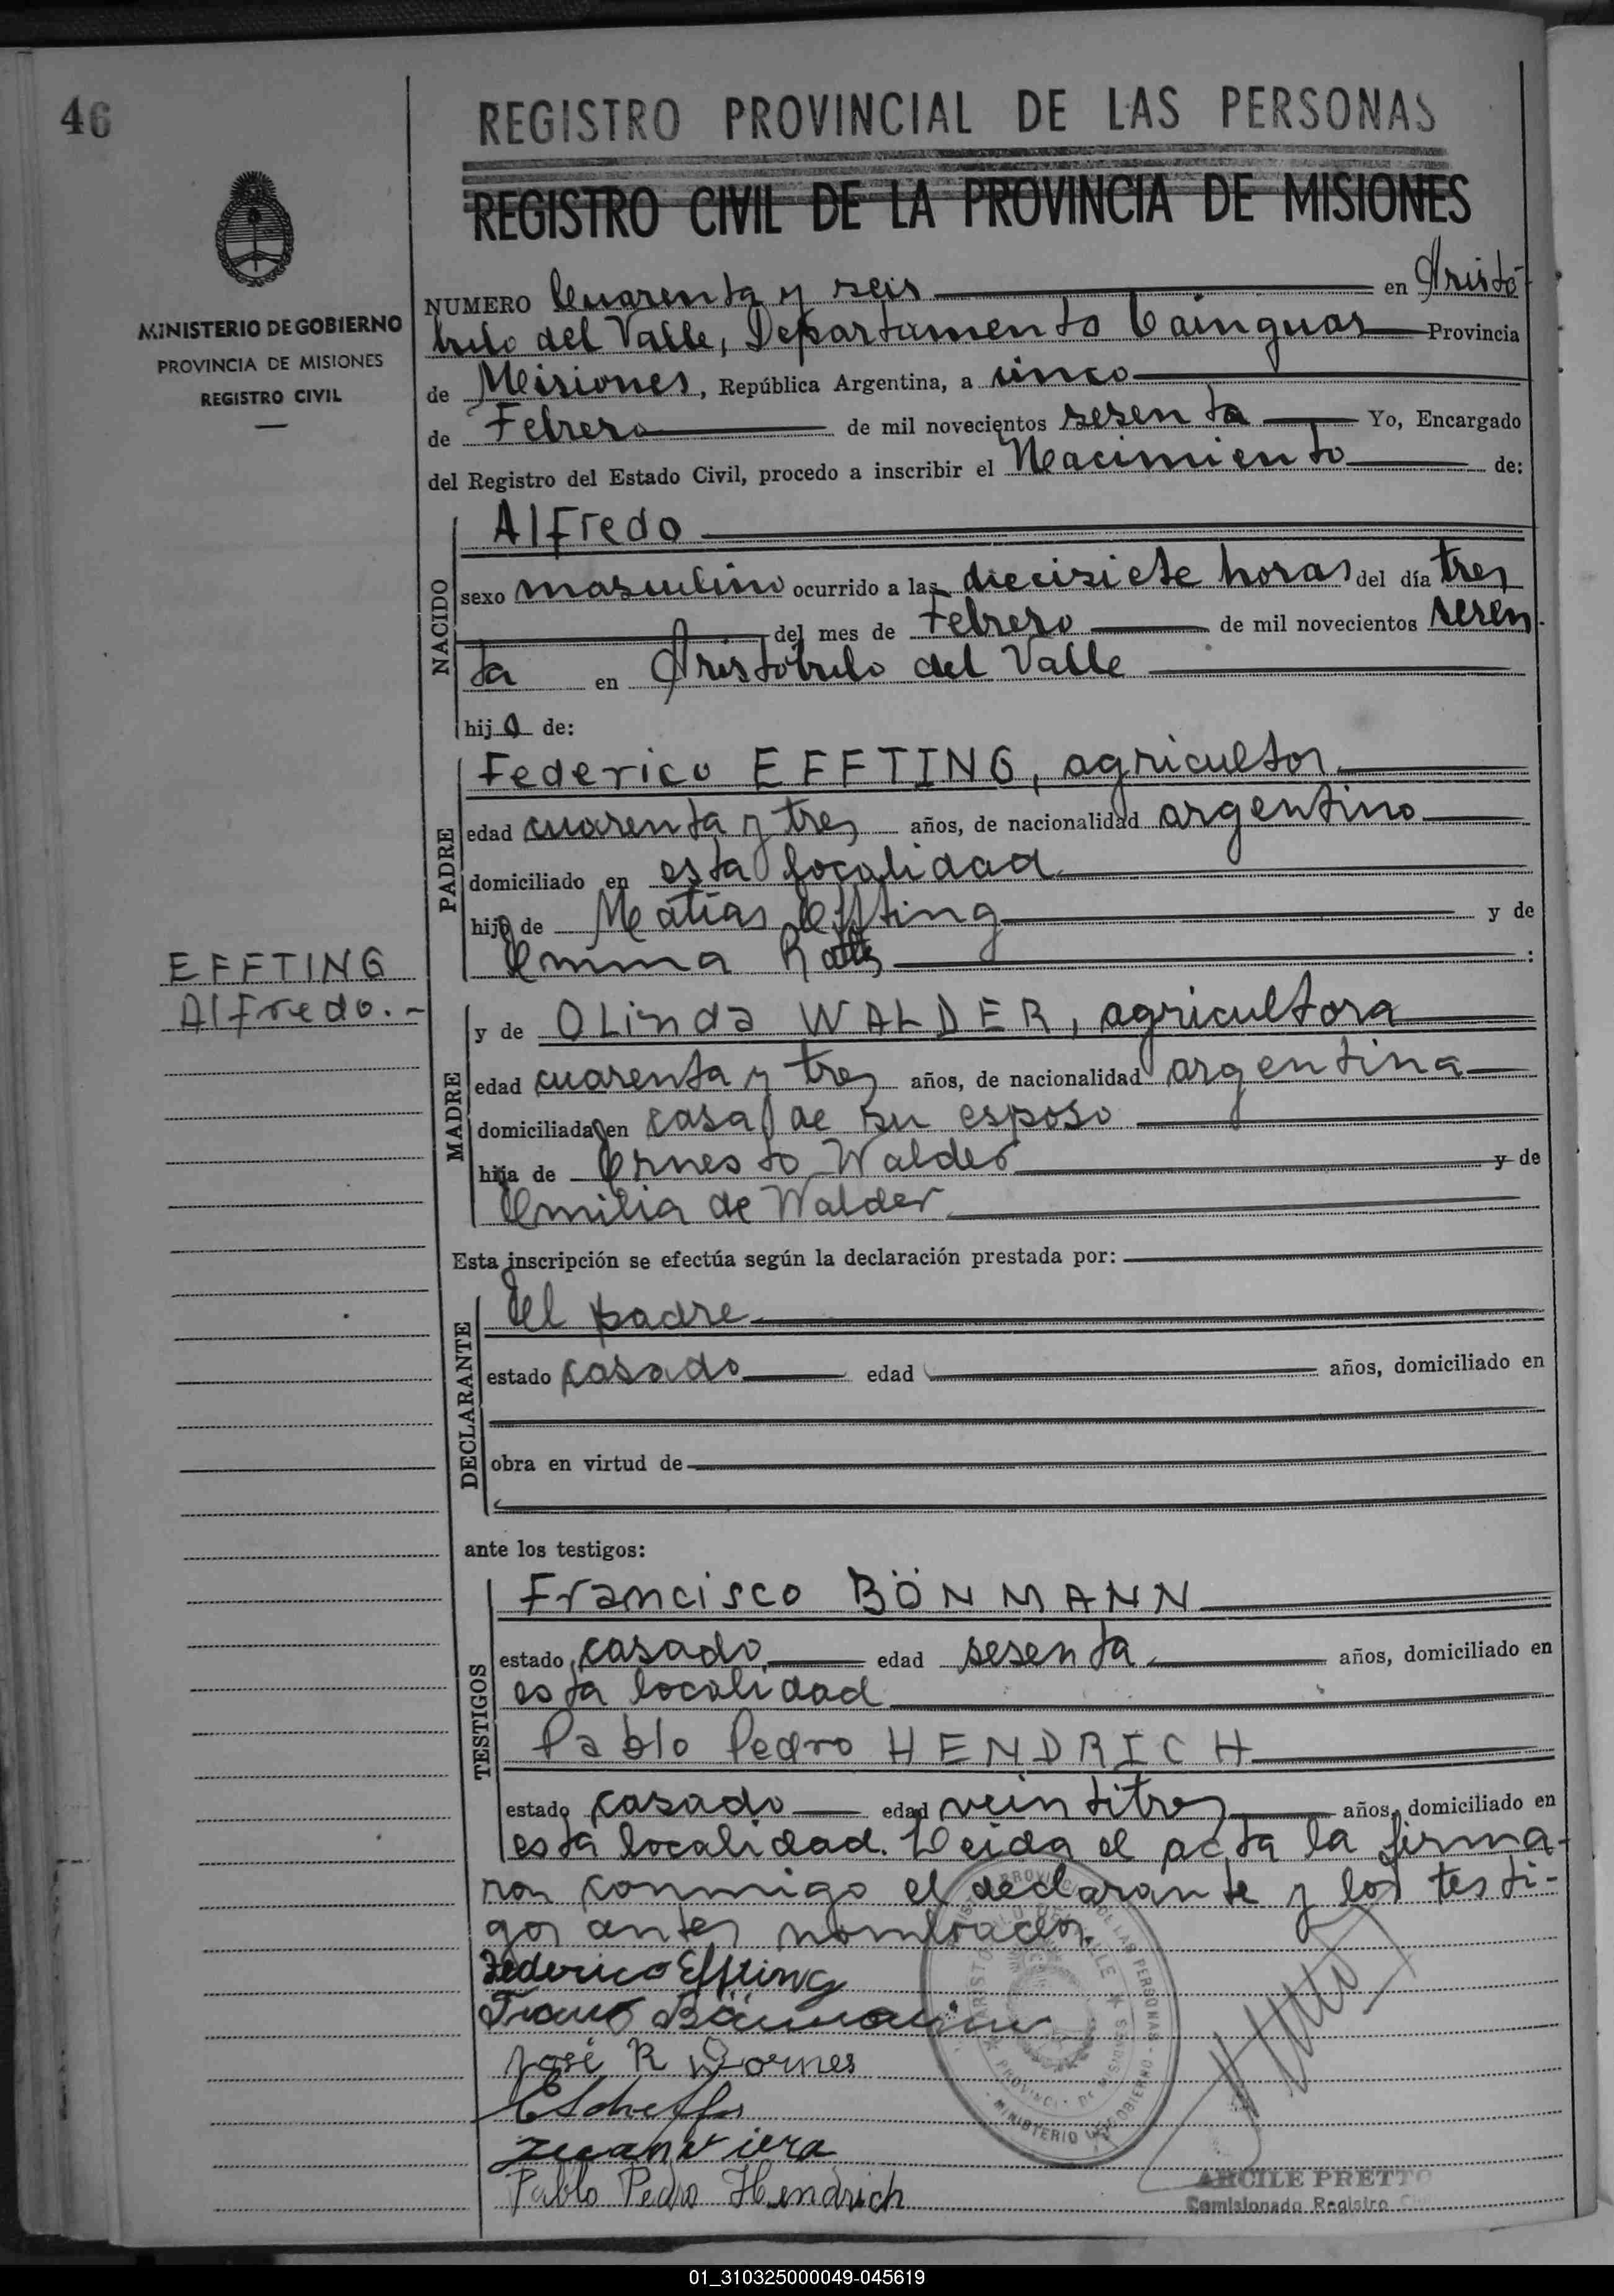 46
REGISTRO PROVINCIAL DE LAS PERSONAS
REGISTRO CIVIL DE LA PROVINCIA DE MISIONES
MINISTERIO DE GOBIERNO
PROVINCIA DE MISIONES
REGISTRO CIVIL
NUMERO Cuarenta y seis en Aristó-
bulo del Valle, Departamento Cainguas Provincia
de Misiones, República Argentina, a cinco
de Febrero de mil novecientos sesenta Yo, Encargado
del Registro del Estado Civil, procedo a inscribir el Nacimiento de:
NACIDO
Alfredo
sexo masculino ocurrido a las diecisiete horas del día tres
del mes de Febrero de mil novecientos sesen-
ta en Aristóbulo del Valle
hijo de:
PADRE
Federico EFFTING, agricultor
edad cuarenta y tres años, de nacionalidad argentino
domiciliado en esta localidad
hijo de Matías Effting y de
Emma :
EFFTING
Alfredo.-
MADRE
y de OLinda WALDER, agricultora
edad cuarenta y tres años, de nacionalidad argentina
domiciliada en casa de su esposo
hija de Ernesto Walder y de
Emilia de Walder
Esta inscripción se efectúa según la declaración prestada por:
DECLARANTE
El padre
estado casado edad años, domiciliado en
obra en virtud de
ante los testigos:
TESTIGOS
Francisco BÖNMANN
estado casado edad sesenta años, domiciliado en
esta localidad
Pablo Pedro HENDRICH
estado casado edad veintitres años, domiciliado en
esta localidad. Leida el acta la firma-
ron conmigo el declarante y los testi-
gos antes nombrados.
Federico Effting
José R Dornes
Juan Viera
Pablo Pedro Hendrich
ARCILE PRETTO
Comisionada Registro
01_310325000049-045619